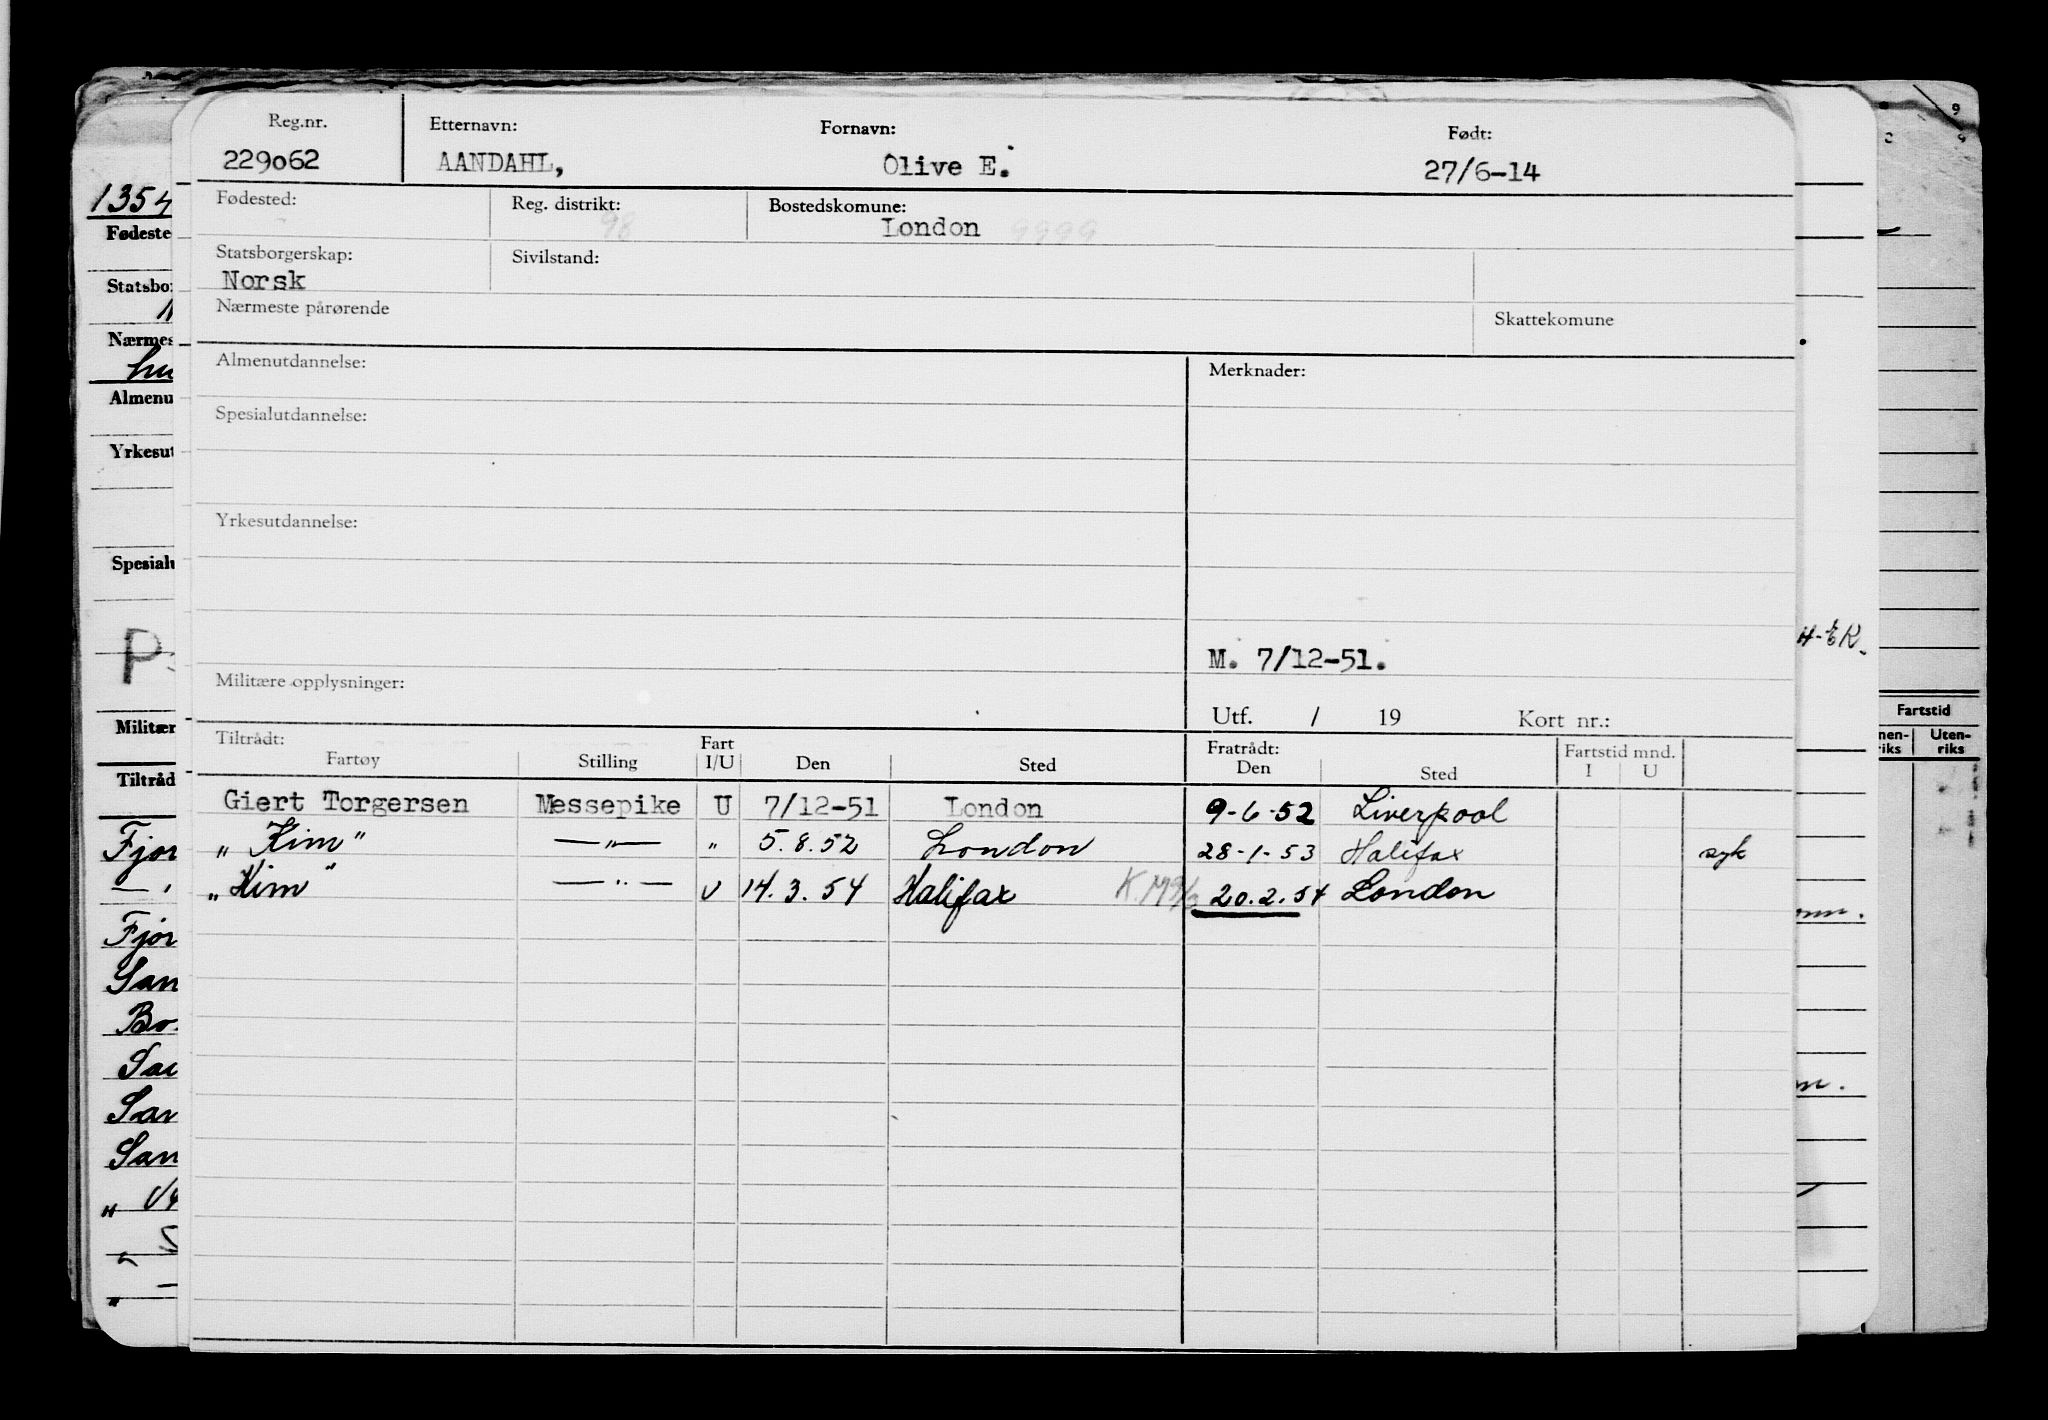 Reg.nr. Etternavn: Fornavn: Født:
229062 AANDAHL, Olive E. 27/6-14
Fødested: Reg. distrikt: Bostedskomune:
98 London 9999
Statsborgerskap: Sivilstand:
Norsk
Nærmeste pårørende Skattekomune
Almenutdannelse: Merknader:
Spesialutdannelse:
Yrkesutdannelse:
M. 7/12-51.
Militære opplysninger:
Utf. / 19 Kort nr.:
Tiltrådt: Fart Fratrådt: Fartstid mnd.
Fartøy Stilling I/U Den Sted Den Sted I U
Giert Torgersen Messepike U 7/12-51 London 9-6-52 Liverpool
„ Kim" —„— „ 5.8.52 London 28-1-53 Halifax syk
„Kim" —„— U 14.3.54 Halifax 20.2.54 London
1354
Fødeste
Statsbo
Nærmes
hu
Almenu
Yrkesut
Spesialu
P
Militær
Tiltråd
Fjor
Fjor
San
Bo
Sai
San
San
H-EK.
Fartstid
nen-riks Uten-riks